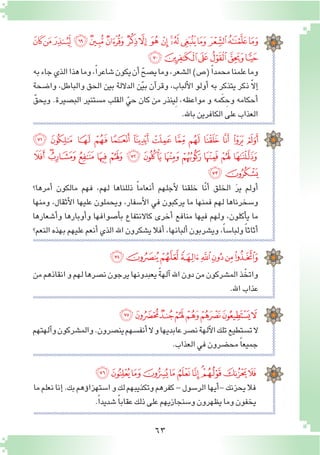 وَمَا عَلَّمْنَاهُ الشِّعْرَ وَمَا يَنْبَغِي لَهُ إِنْ هُوَ إِلَّا ذِكْرٌ وَقُرْآنٌ مُبِينٌ ٦٩ لِيُنْذِرَ مَنْ كَانَ
حَيًّا وَيَحِقَّ الْقَوْلُ عَلَى الْكَافِرِينَ ٧٠
وما علمنا محمداً (ص) الشعر، وما يصحّ أن يكون شاعراً، وما هذا الذي جاء به
إلّا ذكر يتذكر به أولو الألباب، وقرآن بيّن الدلالة بين الحق والباطل، واضحة
أحكامه وحكمه و مواعظه، لينذر من كان حيّ القلب مستنير البصيرة. ويحقّ
العذاب على الكافرين بالله.
أَوَلَمْ يَرَوْا أَنَّا خَلَقْنَا لَهُمْ مِمَّا عَمِلَتْ أَيْدِينَا أَنْعَامًا فَهُمْ لَهَا مَالِكُونَ ٧١
وَذَلَّلْنَاهَا لَهُمْ فَمِنْهَا رَكُوبُهُمْ وَمِنْهَا يَأْكُلُونَ ٧٢ وَلَهُمْ فِيهَا مَنَافِعُ وَمَشَارِبُ أَفَلَا
يَشْكُرُونَ ٧٣
أولم يرَ الخلق أنّا خلقنا لأجلهم أنعاماً ذللناها لهم، فهم مالكون أمرها؟
وسخرناها لهم فمنها ما يركبون في الأسفار، ويحملون عليها الأثقال، ومنها
ما يأكلون، ولهم فيها منافع أخرى كالانتفاع بأصوافها وأوبارها وأشعارها
أثاثاً ولباساً، ويشربون ألبانها، أفلا يشكرون الله الذي أنعم عليهم بهذه النعم؟
وَاتَّخَذُوا مِنْ دُونِ اللَّهِ آلِهَةً لَعَلَّهُمْ يُنْصَرُونَ ٧٤
واتخّذ المشركون من دون الله آلهةً يعبدونها يرجون نصرها لهم و انقاذهم من
عذاب الله.
لَا يَسْتَطِيعُونَ نَصْرَهُمْ وَهُمْ لَهُمْ جُنْدٌ مُحْضَرُونَ ٧٥
لا تستطيع تلك الآلهة نصر عابديها و لا أنفسهم ينصرون. والمشركون وآلهتهم
جميعاً محضرون في العذاب.
فَلَا يَحْزُنْكَ قَوْلُهُمْ إِنَّا نَعْلَمُ مَا يُسِرُّونَ وَمَا يُعْلِنُونَ ٧٦
فلا يحزنك – أيها الرسول – كفرهم وتكذيبهم لك و استهزاؤهم بك. إنا نعلم ما
يخفون وما يظهرون وسنجازيهم على ذلك عقاباً شديداً.
٦٣